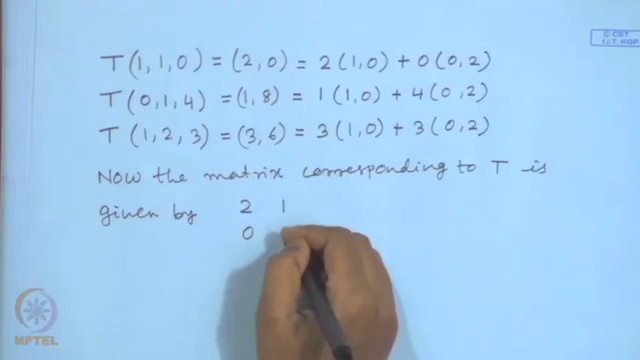 © CET
I.I.T. KGP
T(1,1,0) = (2,0) = 2(1,0) + 0(0,2)
T(0,1,4) = (1,8) = 1(1,0) + 4(0,2)
T(1,2,3) = (3,6) = 3(1,0) + 3(0,2)
Now the matrix corresponding to T is
given by 2 1
0
NPTEL